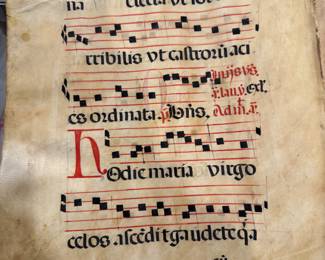 na electa vt sol
rribilis vt castrorū aci
es ordinata.
Hodie maria virgo
celos. ascēdit gaudete q̄a